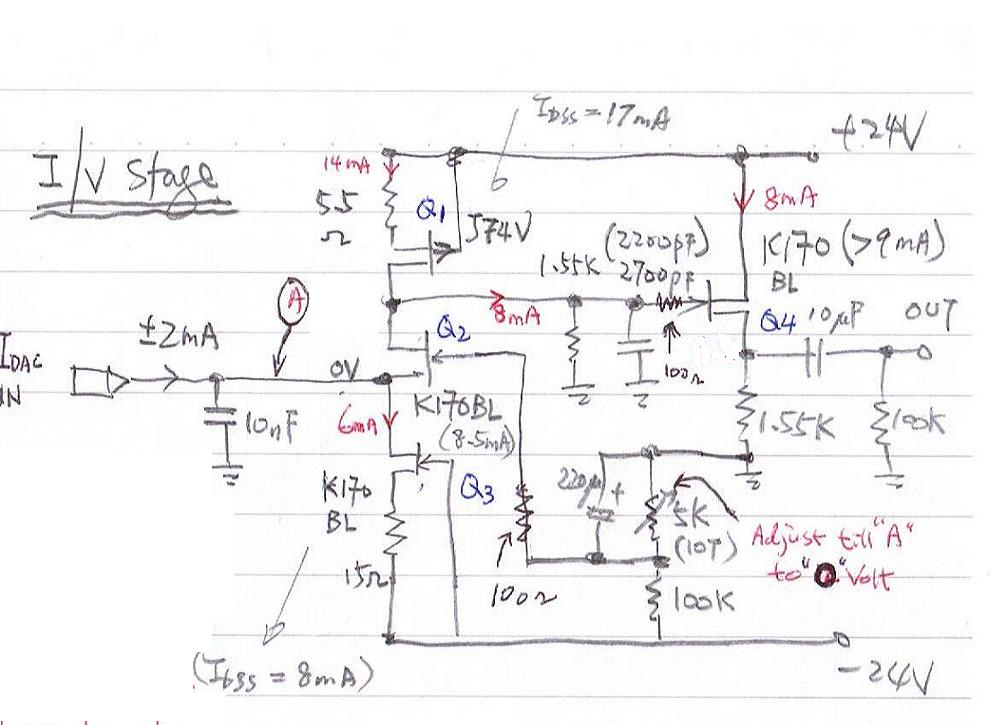 I/V Stage
IDSS = 17mA
+24V
14mA
55
Ω
Q1
J74V
8mA
K170 (>9mA)
BL
(2200pF)
2700pF
1.55K
8mA
Q4
10µF
OUT
A
±2mA
IDAC
IN
0V
Q2
100Ω
10nF
6mA
K170BL
(8.5mA)
1.55K
100K
K170
BL
Q3
220µ
+
5K
(10T)
Adjust till "A"
to "0" Volt
15Ω
100Ω
100K
(IDSS = 8mA)
-24V